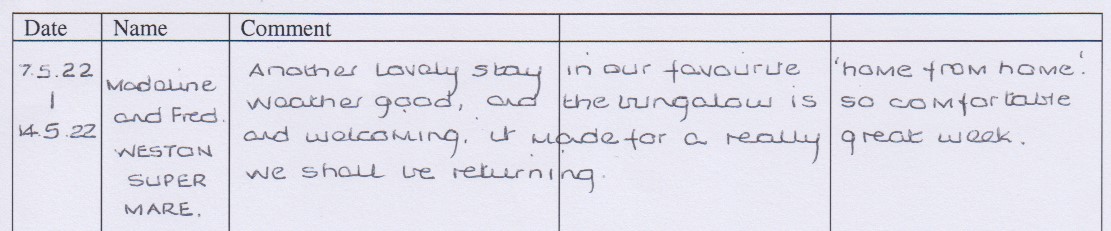 Date Name Comment
7.5.22
|
14.5.22
Madaline
and Fred.
WESTON
SUPER
MARE.
Another Lovely stay in our favourite 'home from home'.
weather good, and the bungalow is so comfortable
and welcoming, it made for a really great week.
we shall be returning.